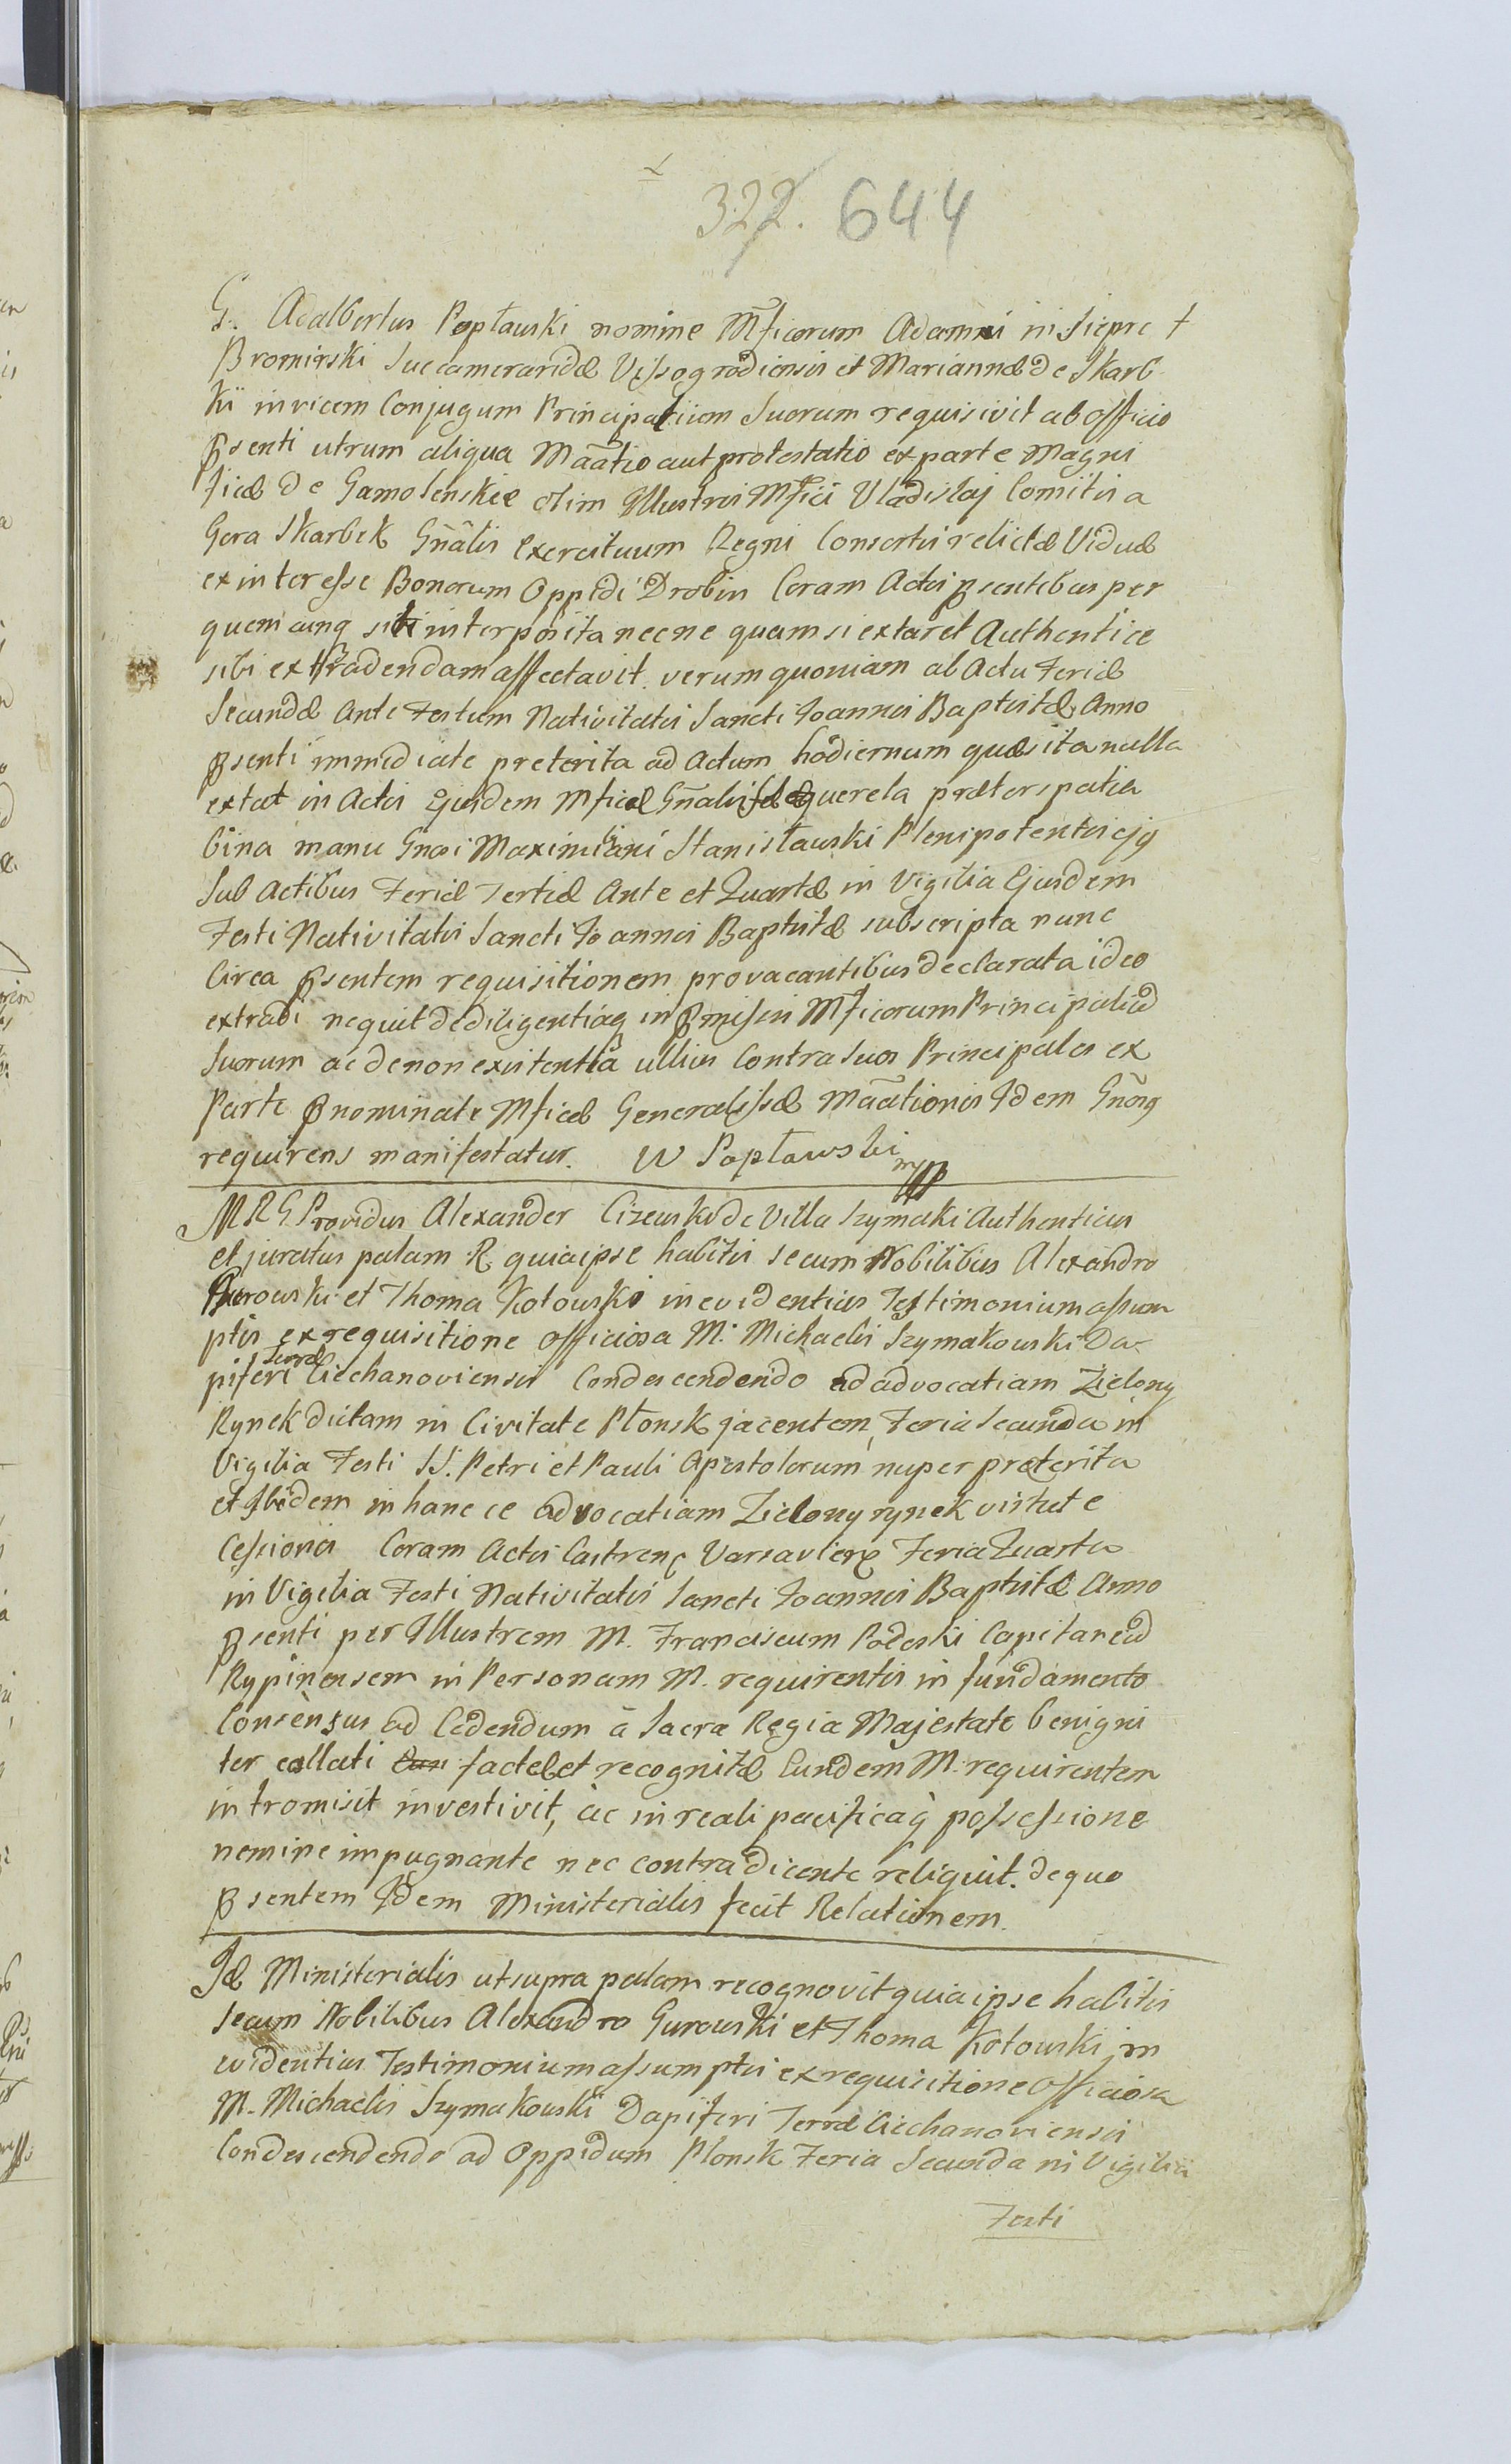 322. 644
G. Adalbertus Popławski nomine Mficorum Adami in Siepre +
Bromirski Succameraridæ Vissogrodiensis et Mariannæ de Skarb
kii invicem Conjugum Principalium Suorum requisivit ab officio
pSenti utrum aliqua Maãtio aut protestatio ex parte Magni
ficæ de Gamolenskie olim Illustris Mfici Vladislaj Comitis a
Gora Skarbek Gñalis Exercituum Regni Consortis relictæ Viduæ
ex interesse Bonorum Oppidi Drobin Coram Actis psentibus per
quemcunq sit interposita necne quam si extaret Authentice
sibi extradendam affectavit. verum quoniam ab Actu Feriæ
Secundæ Ante Festum Nativitatis Sancti Joannis Baptistæ Anno
psenti immediate preterita ad Actum hodiernum quæsita nulla
extat in Actis Ejusdem Mficæ Gñalis querela præter spatia
bina manu Gnosi Maximiliani Stanisławski Plenipotentis ejq
Sub Actibus Feriæ Tertiæ Ante et Quartæ in Vigilia Ejusdem
Festi Nativitatis Sancti Joannis Baptistæ subscripta nunc
Circa psentem requisitionem pro vacantibus declarata ideo
extradi nequit de diligentiaq in pmissis Mficorum Principaliū
Suorum ac de non existentia ullius Contra Suos Principales ex
Parte pnominate Mficæ Generalissæ Maãtionis Idem Gñong
requirens manifestatur. W Popławski mpp
MRG Providus Alexander Cizewski de Villa Szymaki Authenticus
et juratus palam R. quia ipse habitis secum Nobilibus Alexandro
Gurowski et Thoma Kotowski in evidentius Testimonium assum
ptis ex requisitione officiosa M. Michaelis Szymakowski Da-
piferi Terræ Ciechanoviensis Condescendendo ad advocatiam Zielony
Rynek dictam in Civitate Płonsk jacentem, Feria Secunda in
Vigilia Festi SS. Petri et Pauli Apostolorum nuper preterita
et Ibidem in hance advocatiam Zielony rynek virtute
Cessionis Coram Actis Castren Varsavien Feria Quarta
in Vigilia Festi Nativitatis Sancti Joannis Baptistæ Anno
psenti per Illustrem M. Franciscum Podoski Capitaneū
Rypinensem in Personam M. requirentis in fundamento
Consensus ad Cedendum à Sacra Regia Majestate benigni
ter collati factæ et recognitæ Eundem M. requirentem
intromisit investivit, ac in reali pacificaq possessione
nemine impugnante nec contradicente reliquit. de quo
psentem Idem Ministerialis fecit Relationem.
Id Ministerialis ut supra palam recognovit quia ipse habitis
secum Nobilibus Alexandro Gurowski et Thoma Kotowski in
evidentius Testimonium assumptis ex requisitione officiosa
M. Michaelis Szymakowski Dapiferi Terræ Ciechanoviensis
Condescendendo ad Oppidum Plonsk Feria Secunda in Vigilia
Festi